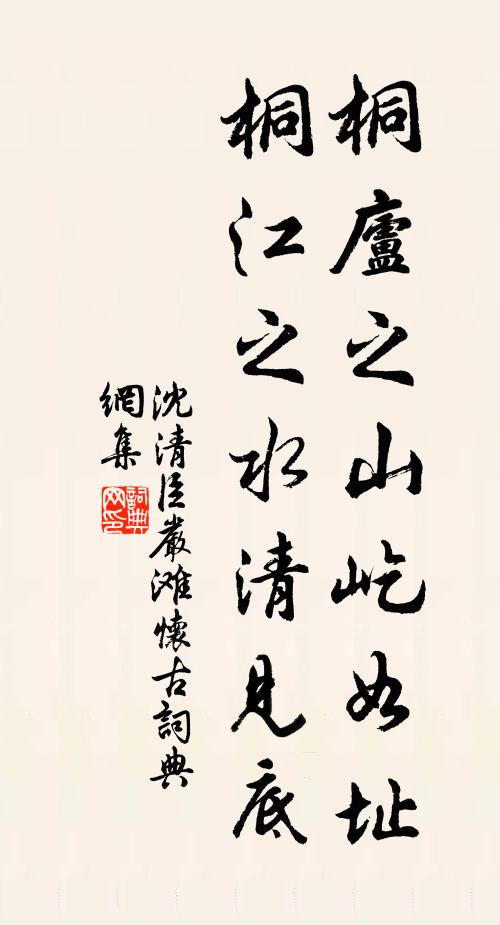 桐廬之山屹如址
桐江之水清見底
沈清臣嚴滩懷古詞典
網集
詞典网印